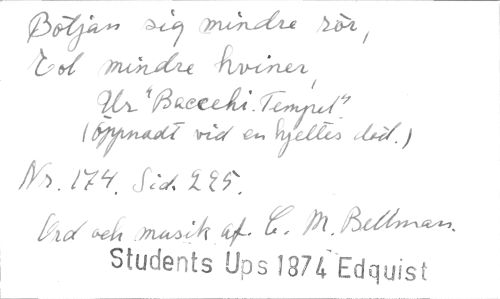 Böljan sig mindre rör,
Eol mindre hviner,
Ur "Bacchi. Tempel"
(öppnadt vid en hjeltes död.)
Nr. 174. Sid. 225.
Ord och musik af. C. M. Bellman.
Students Ups 1874 Edquist